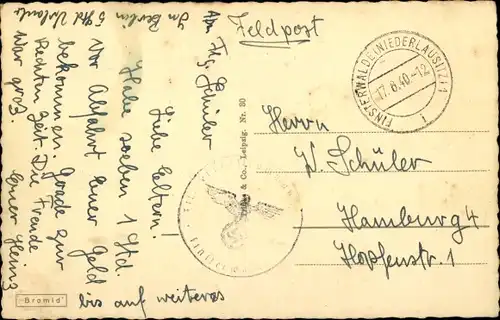 Feldpost
Abs. Fhj. Schüler
In Berlin 5 Std Urlaub
Liebe Eltern!
Habe soeben 1 Std.
vor Abfahrt Euer Geld
bekommen. Grade zur
rechten Zeit. Die Freude
war groß.
bis auf weiteres
Euer Heinz
Herrn
W. Schüler
Hamburg 4
Hopfenstr. 1
FINSTERWALDE (NIEDERLAUSITZ) 1
17.8.40-12
i
& Co., Leipzig, Nr. 30
"Bromid"